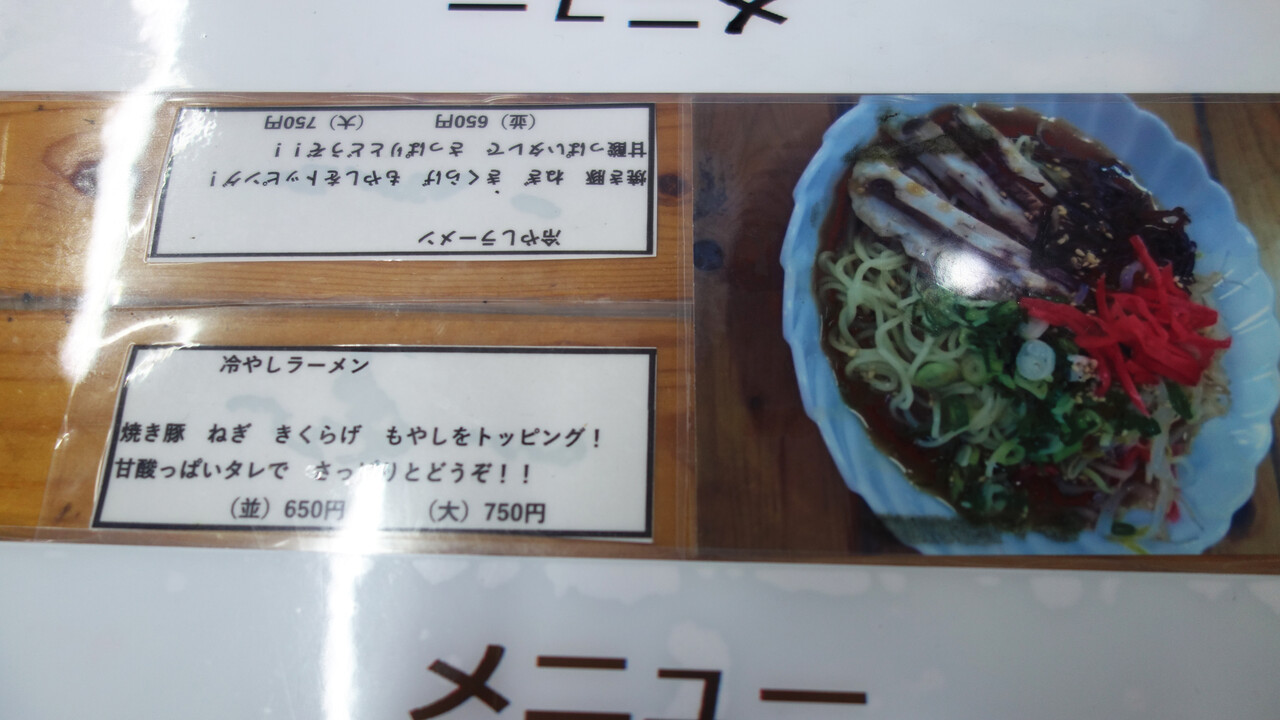 メニュー
冷やしラーメン
焼き豚 ねぎ きくらげ もやしをトッピング!
甘酸っぱいタレで さっぱりとどうぞ!!
(並)650円 (大)750円
冷やしラーメン
焼き豚 ねぎ きくらげ もやしをトッピング!
甘酸っぱいタレで さっぱりとどうぞ!!
(並)650円 (大)750円
メニュー